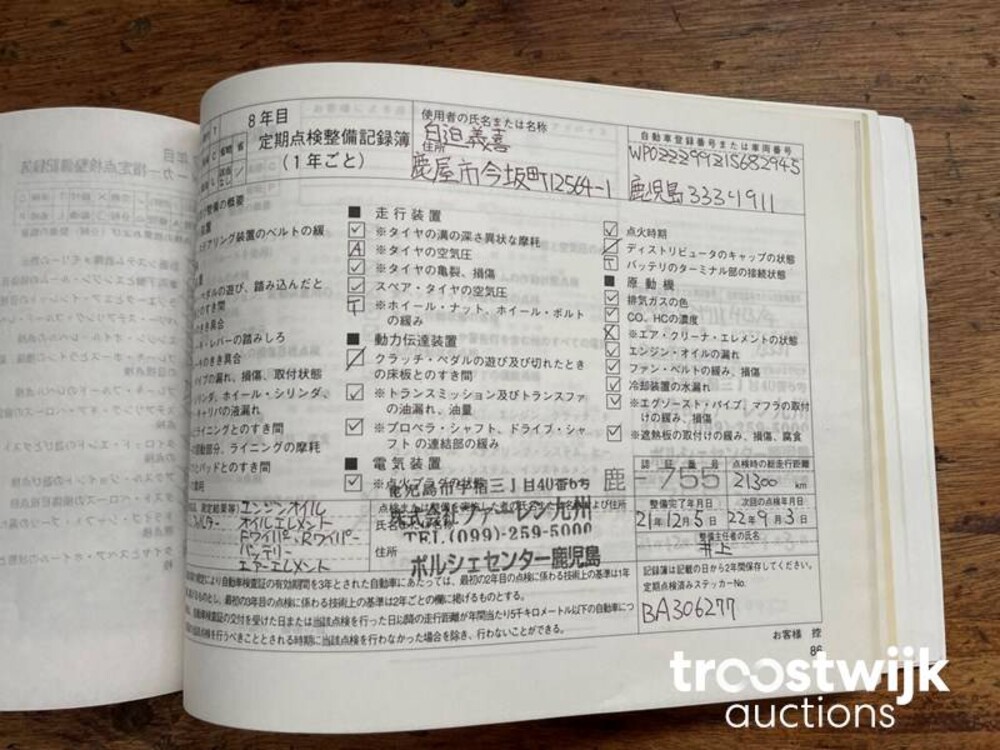 8年目
定期点検整備記録簿
(1年ごと)
使用者の氏名または名称
白迫義喜
住所
鹿屋市今坂町12564-1
自動車登録番号または車両番号
WP0ZZZ99Z1S682945
鹿児島333ち1911
整備の概要
ステアリング装置のベルトの緩
ペダルの遊び、踏み込んだと
のすき間
のきき具合
キ・レバーの踏みしろ
ーキのきき具合
パイプの漏れ、損傷、取付状態
リンダ、ホイール・シリンダ、
キャリパの液漏れ
ライニングとのすき間
動部分、ライニングの摩耗
とパッドとのすき間
摩耗
■ 走行装置
※タイヤの溝の深さ異状な摩耗
A ※タイヤの空気圧
※タイヤの亀裂、損傷
スペア・タイヤの空気圧
T ※ホイール・ナット、ホイール・ボルト
の緩み
■ 動力伝達装置
クラッチ・ペダルの遊び及び切れたとき
の床板とのすき間
※トランスミッション及びトランスファ
の油漏れ、油量
※プロペラ・シャフト、ドライブ・シャ
フトの連結部の緩み
■ 電気装置
※点火プラグの状態
点火時期
ディストリビュータのキャップの状態
T バッテリのターミナル部の接続状態
■ 原動機
排気ガスの色
CO、HCの濃度
X ※エア・クリーナ・エレメントの状態
エンジン・オイルの漏れ
ファン・ベルトの緩み、損傷
冷却装置の水漏れ
※エグゾースト・パイプ、マフラの取付
けの緩み、損傷
※遮熱板の取付けの緩み、損傷、腐食
認証番号
鹿 - 755
点検時の総走行距離
21300 km
整備完了年月日
21年12月5日
次回の点検年月日
22年9月3日
整備主任者の氏名
井上
記録簿は記載の日から2年間保存してください。
定期点検済みステッカーNo.
BA306277
測定結果等)
エンジンオイル
オイルエレメント
Fワイパー・Rワイパー
バッテリー
エアーエレメント
鹿児島市宇宿三丁目40番6号
株式会社ファーレン九州
TEL.(099)-259-5000
住所
ポルシェセンター鹿児島
規定により自動車検査証の有効期間を3年とされた自動車にあたっては、最初の2年目の点検に係わる技術上の基準は1年
るものとし、最初の3年目の点検に係わる技術上の基準は2年ごとの欄に掲げるものとする。
自動車検査証の交付を受けた日または当該点検を行った日以降の走行距離が年間当たり5千キロメートル以下の自動車につ
該点検を行うべきこととされる時期に当該点検を行わなかった場合を除き、行わないことができる。
お客様 控
86
troostwijk
auctions